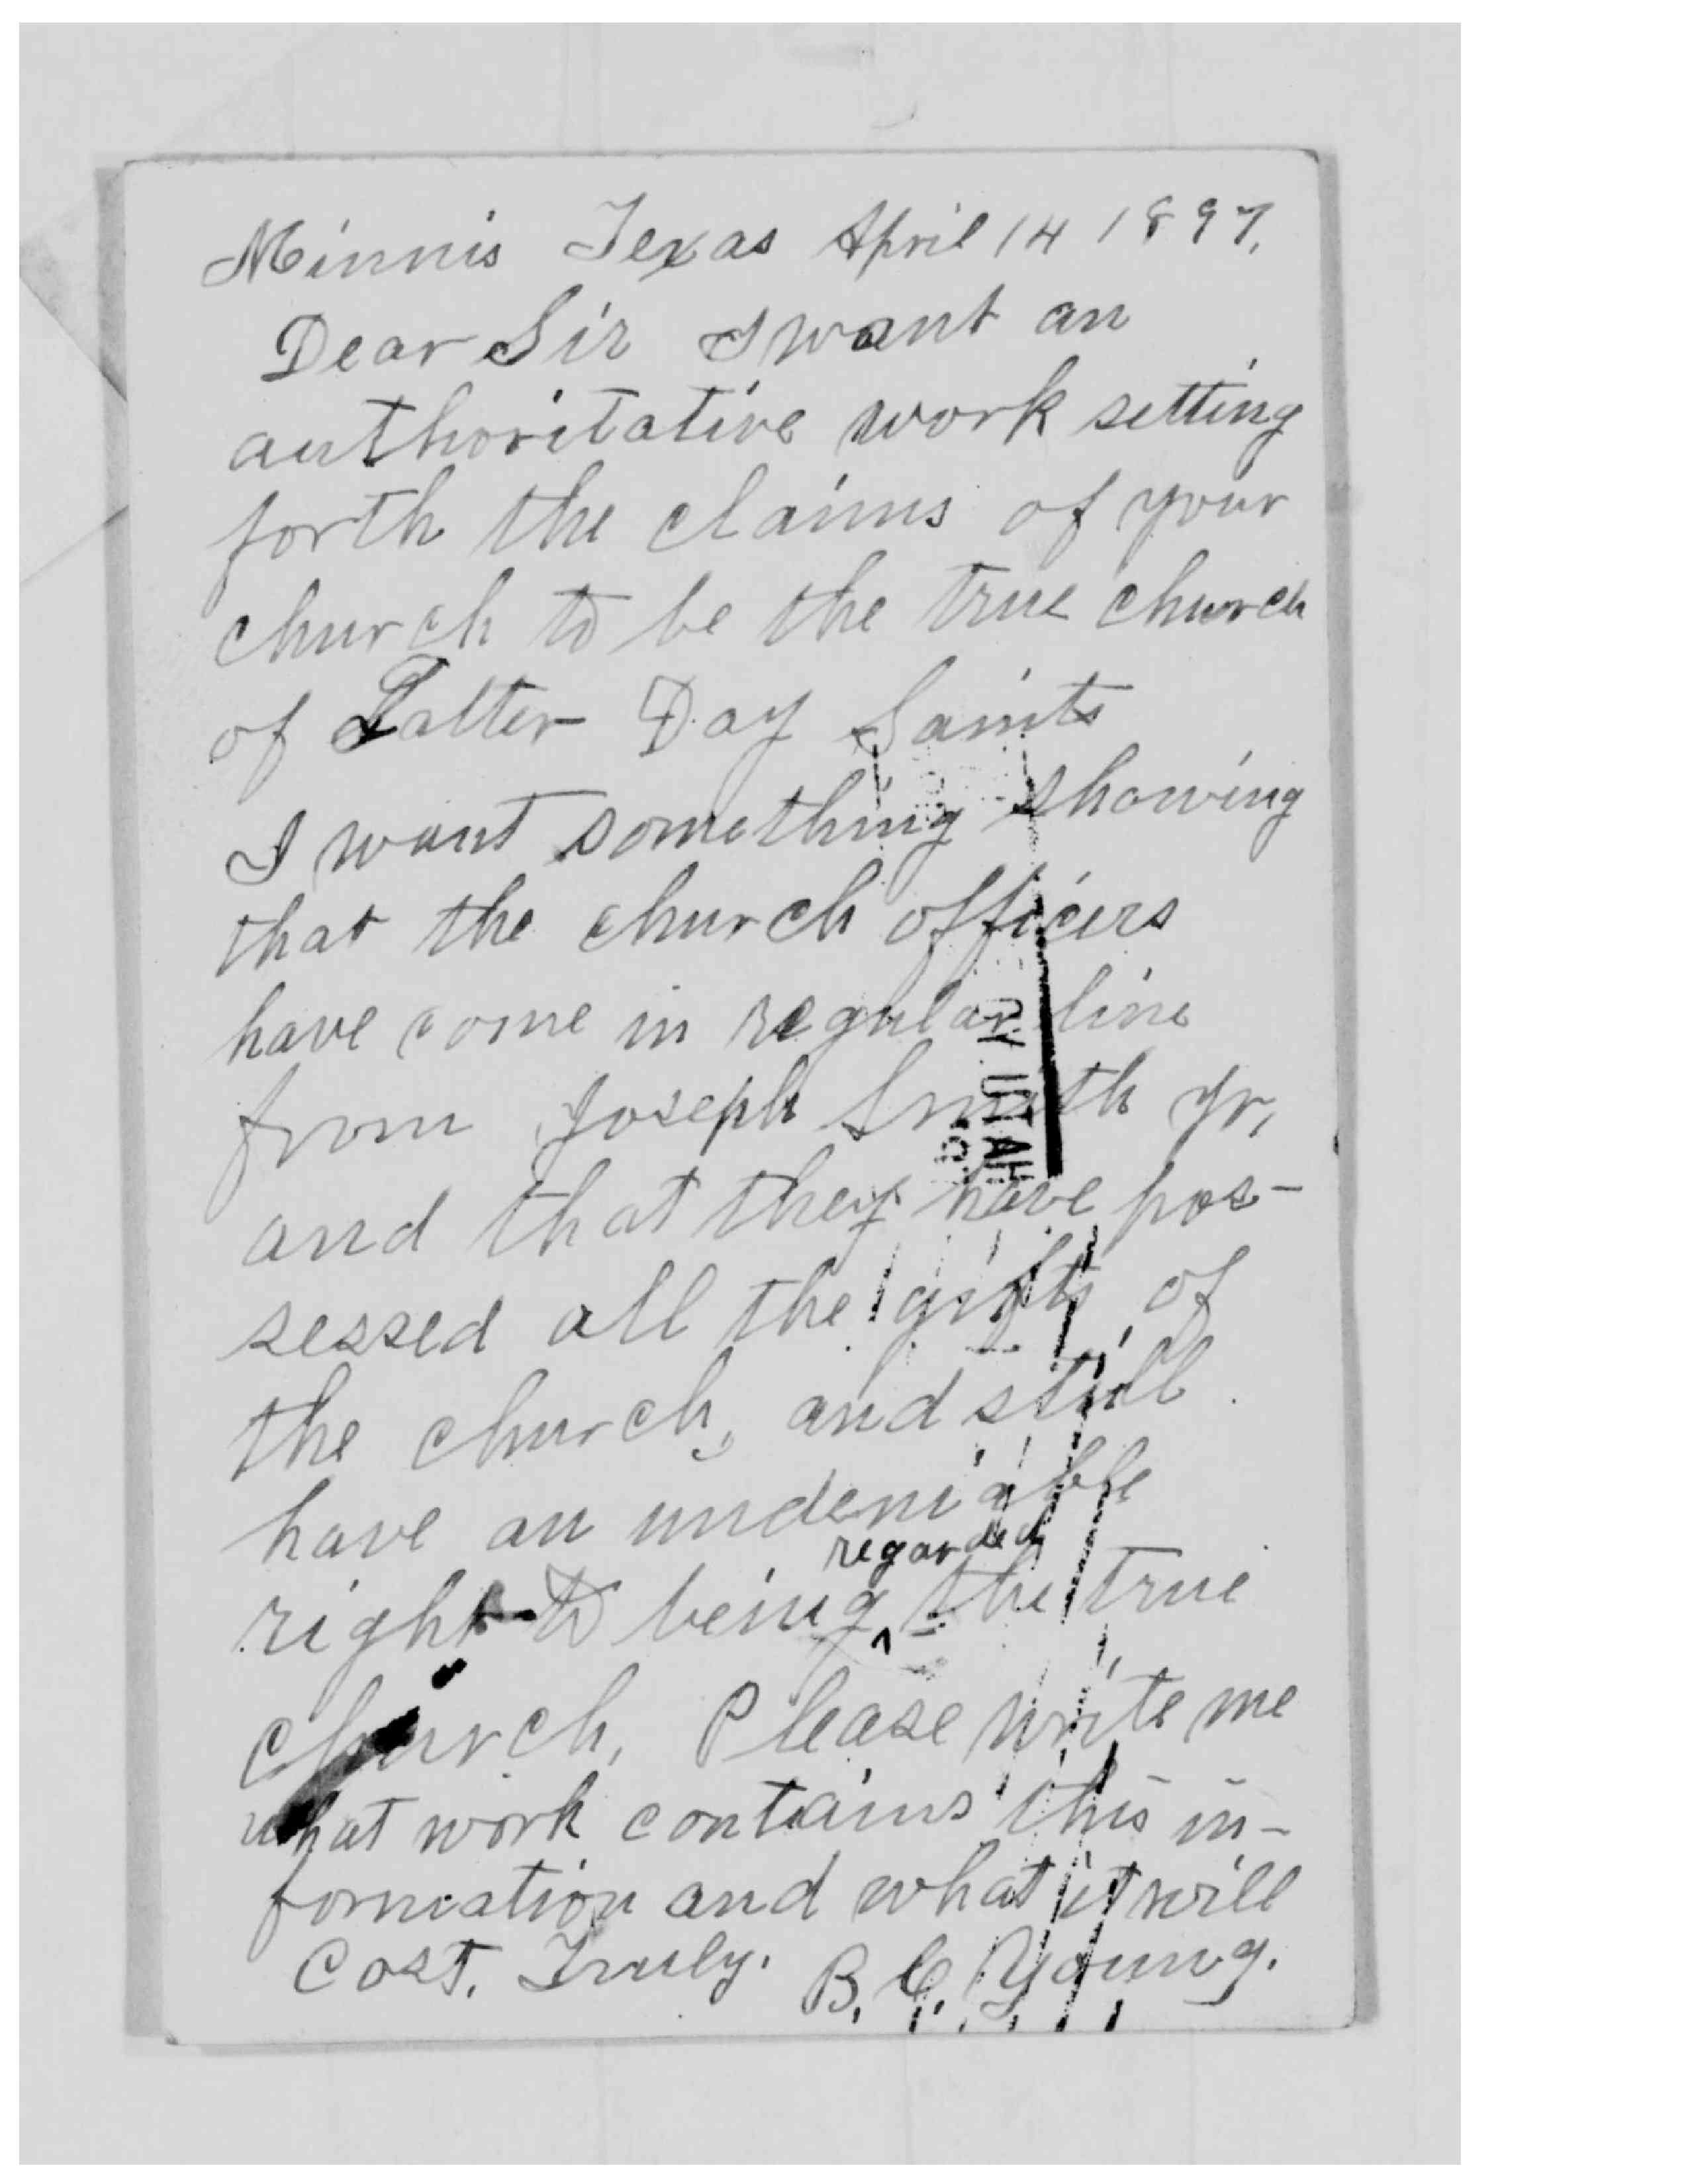 Minnis Texas April 14 1897.
Dear Sir I want an
authoritative work setting
forth the claims of your
church to be the true church
of Latter Day Saints
I want something showing
that the church officers
have come in regular line
from Joseph Smith Jr,
and that they have pos-
sessed all the gifts of
the church, and still
have an undeniable
regarded
right to being ^ the true
church. Please write me
what work contains this in-
formation and what it will
Cost. Truly. B. C. Young.
CY UTAH